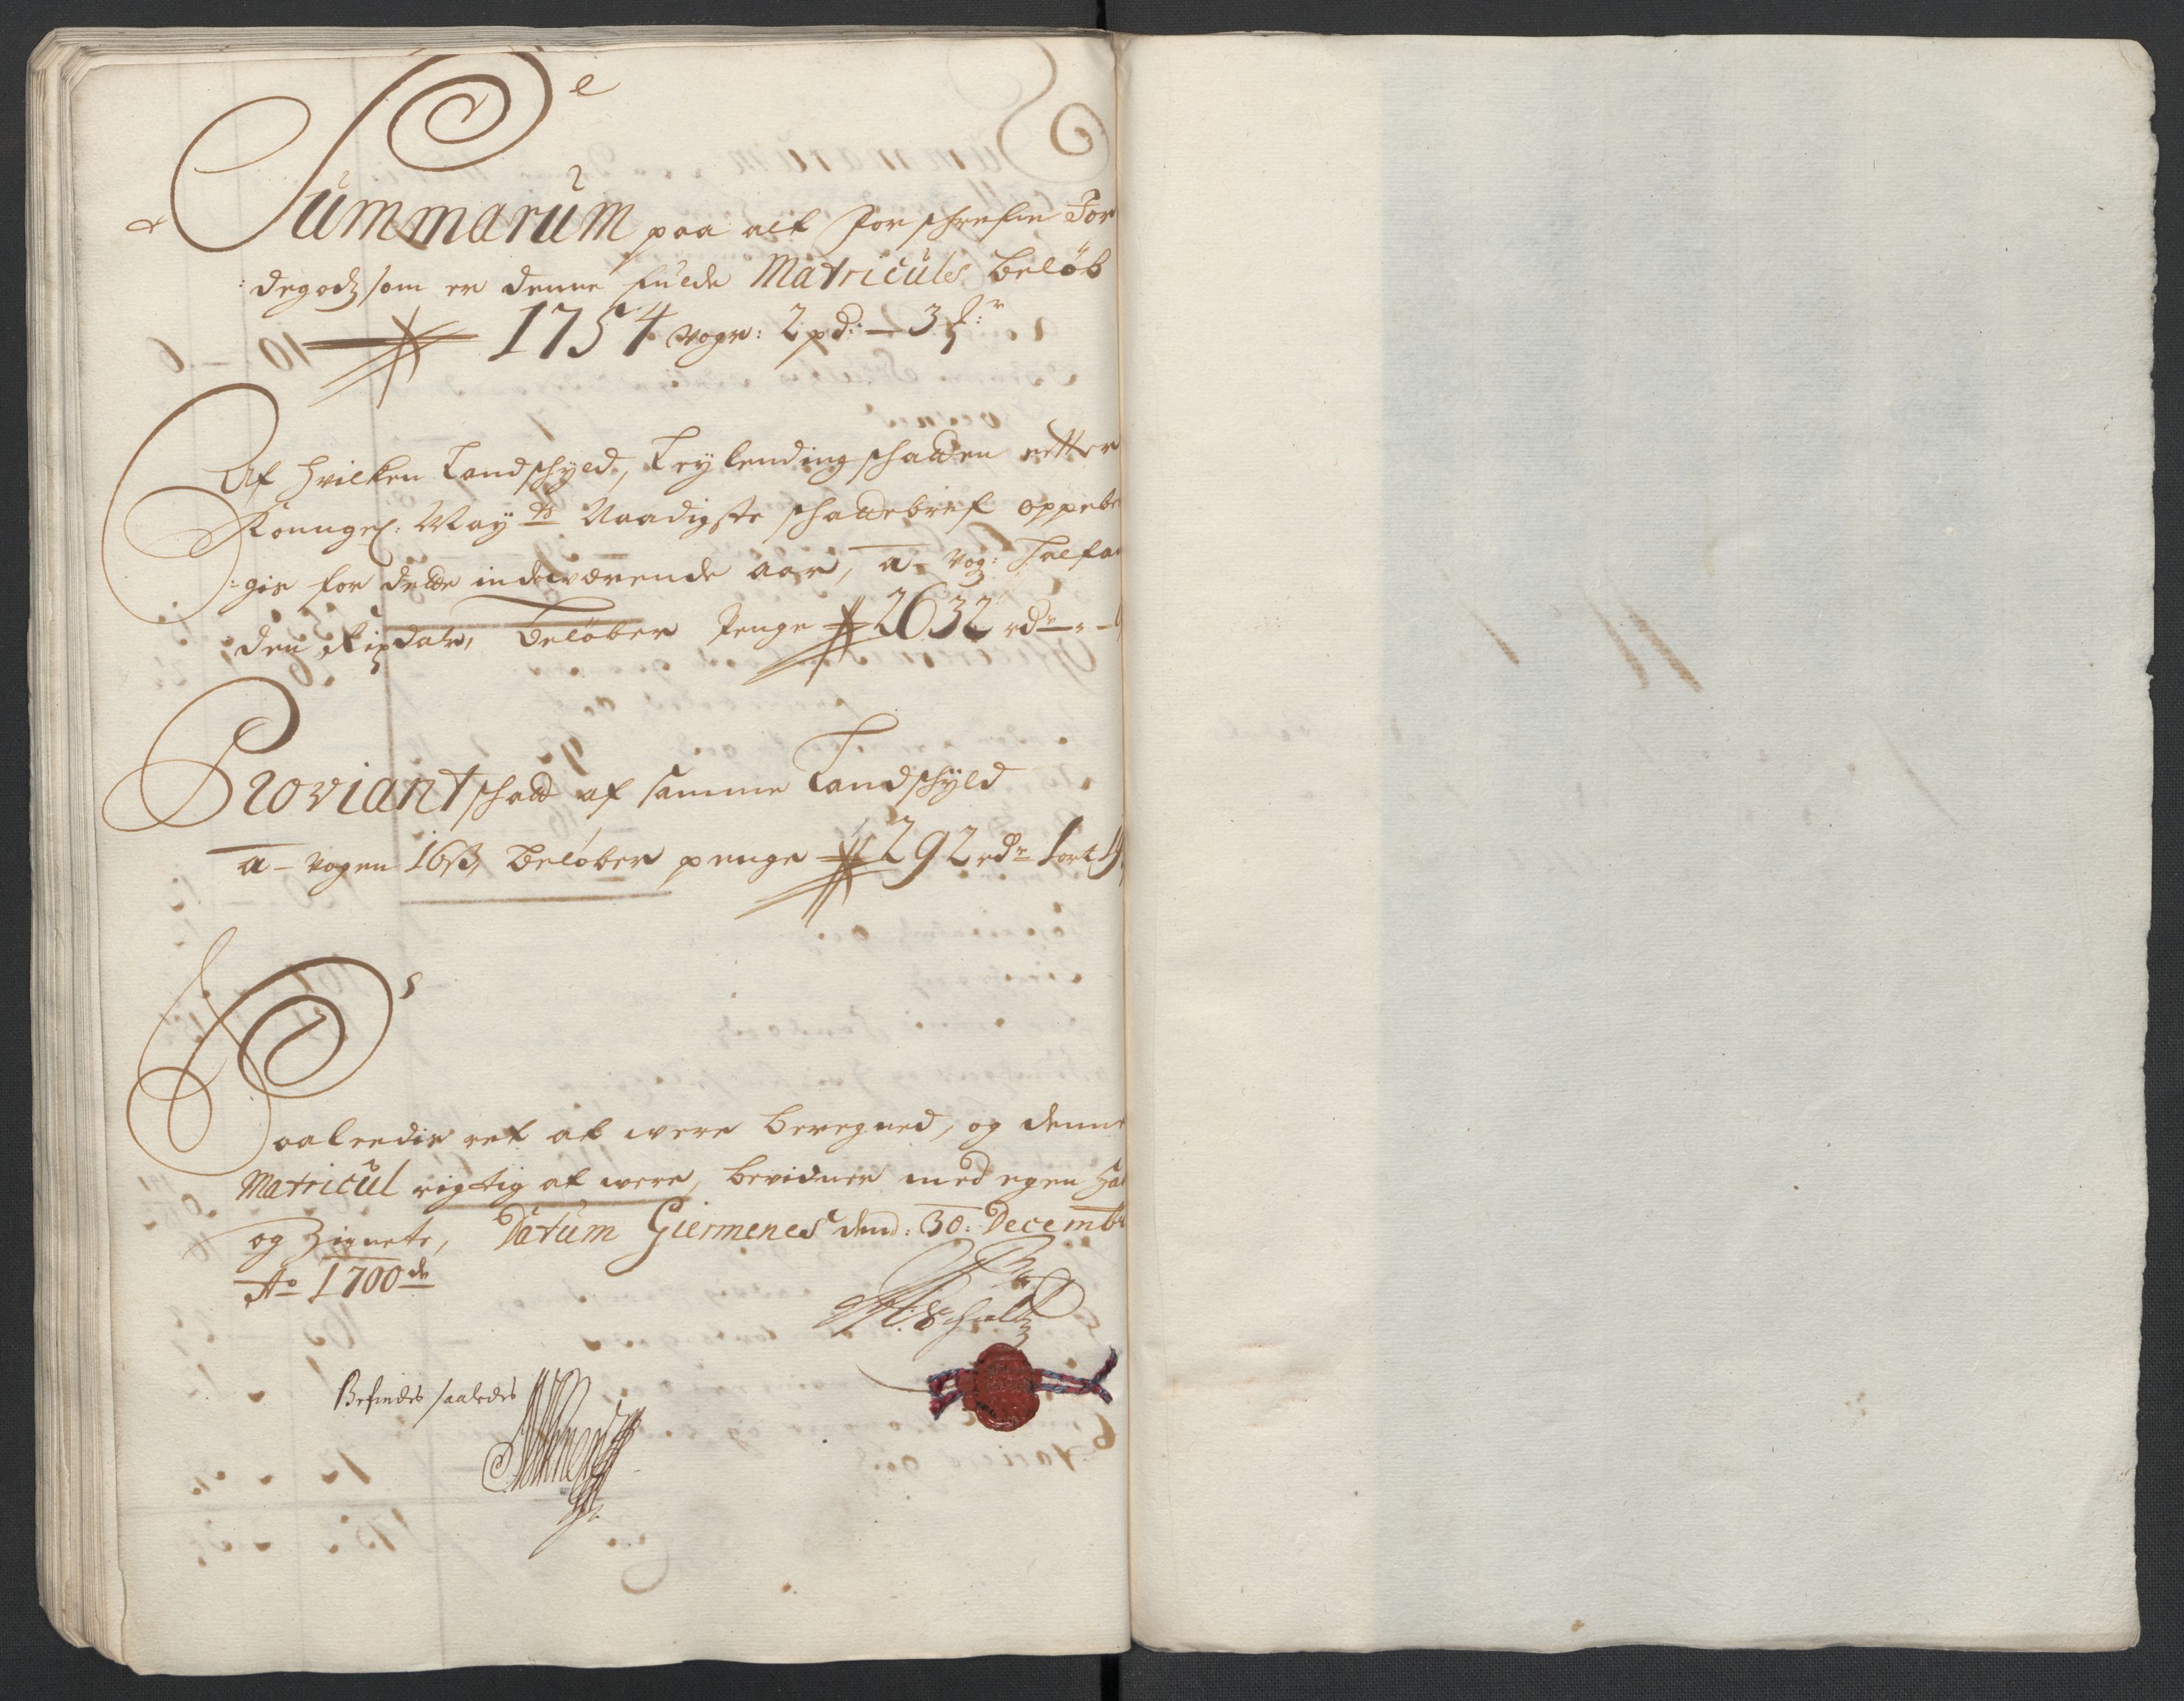 Summarum paa alt forschrefne Jor
degodz som er denne fulde Matriculs beløb
1754 vogr: 2 pd: — 3
Af hvilken Landschyld, Leylending schatten effter
Konngel: May:ts Naadigste schattebref oppebe
gis for dette indeværende aar, a vog: halfan
den Rixdalr, Beløber Penge 2632 rdr
Proviant schatt af samme Landschyld
a – vogen 16 s, beløber penge 292 rdr 1 ort
Saaleedis ret at were beregned, og denne
Matricul rigtig at were, bevidner med egen Ha
og Zignete, Datum Giermenes dend: 30: Decemb
Ao 1700de
Schultz
Befindes saaledes